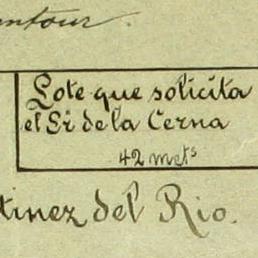 Lote que solicita
el Sr de la Cerna
42 mets
tinez del Rio.